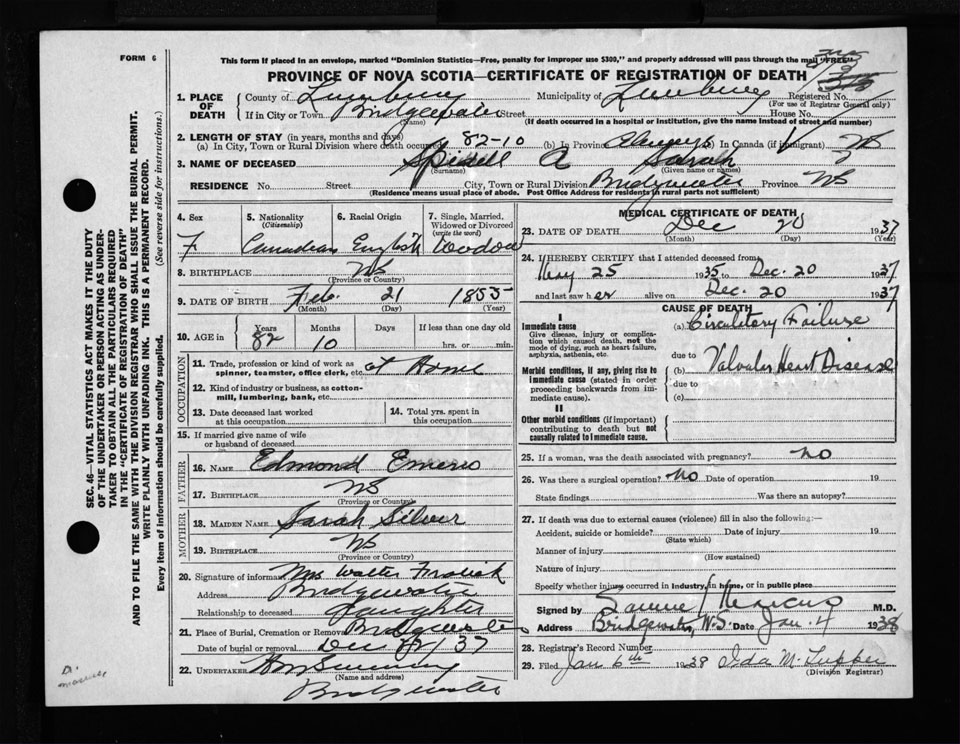 FORM 6
This form if placed in an envelope, marked "Dominion Statistics—Free, penalty for improper use $300," and properly addressed will pass through the mail "FREE"
PROVINCE OF NOVA SCOTIA—CERTIFICATE OF REGISTRATION OF DEATH
1. PLACE OF DEATH
County of Lunenburg Municipality of Lunenburg Registered No.
(For use of Registrar General only)
If in City or Town Bridgewater Street House No.
(Name) (If death occurred in a hospital or institution, give the name instead of street and number)
2. LENGTH OF STAY (in years, months and days)
(a) In City, Town or Rural Division where death occurred 82-10 (b) In Province Always (c) In Canada (if immigrant)
3. NAME OF DECEASED Spidell A Sarah
(Surname) (Given name or names)
RESIDENCE No. Street City, Town or Rural Division Bridgewater Province NS
(Residence means usual place of abode. Post Office Address for residents in rural parts not sufficient)
4. Sex F
5. Nationality (Citizenship) Canadian
6. Racial Origin English
7. Single, Married, Widowed or Divorced (write the word)
8. BIRTHPLACE NS
(Province or Country)
9. DATE OF BIRTH Feb. 21 1855
(Month) (Day) (Year)
10. AGE in Years 82 Months 10 Days If less than one day old hrs. or min.
OCCUPATION
11. Trade, profession or kind of work as spinner, teamster, office clerk, etc. at Home
12. Kind of industry or business, as cotton-mill, lumbering, bank, etc.
13. Date deceased last worked at this occupation
14. Total yrs. spent in this occupation
15. If married give name of wife or husband of deceased
FATHER
16. NAME Edmond
17. BIRTHPLACE NS
(Province or Country)
MOTHER
18. MAIDEN NAME Sarah Silver
19. BIRTHPLACE NS
(Province or Country)
20. Signature of informant Mrs Walter
Address Bridgewater
Relationship to deceased daughter
21. Place of Burial, Cremation or Removal Bridgewater
Date of burial or removal Dec 22/37
22. UNDERTAKER
(Name and address)
Bridgewater
MEDICAL CERTIFICATE OF DEATH
23. DATE OF DEATH Dec 20 1937
(Month) (Day) (Year)
24. I HEREBY CERTIFY that I attended deceased from
May 25 1935 to Dec. 20 1937
and last saw her alive on Dec. 20 1937
CAUSE OF DEATH
I
Immediate cause
Give disease, injury or complication which caused death, not the mode of dying, such as heart failure, asphyxia, asthenia, etc.
(a) Circulatory Failure
due to
Morbid conditions, if any, giving rise to immediate cause (stated in order proceeding backwards from immediate cause).
(b) Valvular Heart Disease
due to
(c)
II
Other morbid conditions (if important) contributing to death but not causally related to immediate cause.
25. If a woman, was the death associated with pregnancy? no
26. Was there a surgical operation? no Date of operation 19
State findings Was there an autopsy?
27. If death was due to external causes (violence) fill in also the following:—
Accident, suicide or homicide? Date of injury 19
(State which)
Manner of injury
(How sustained)
Nature of injury
Specify whether injury occurred in industry, in home, or in public place
Signed by M.D.
Address Bridgewater, N.S. Date Jan. 4 1938
28. Registrar's Record Number
29. Filed Jan 6th 1938 Ida M. Tupper
(Division Registrar)
SEC. 46—VITAL STATISTICS ACT MAKES IT THE DUTY
OF THE UNDERTAKER OR PERSON ACTING AS UNDER-
TAKER TO OBTAIN ALL THE PARTICULARS REQUIRED
IN THE "CERTIFICATE OF REGISTRATION OF DEATH"
AND TO FILE THE SAME WITH THE DIVISION REGISTRAR WHO SHALL ISSUE THE BURIAL PERMIT.
WRITE PLAINLY WITH UNFADING INK. THIS IS A PERMANENT RECORD.
Every item of information should be carefully supplied. (See reverse side for instructions.)